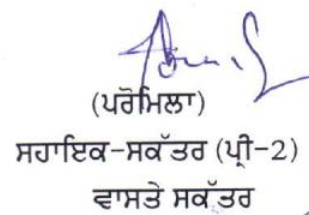 (ਪਰੋਮਿਲਾ)
ਸਹਾਇਕ-ਸਕੱਤਰ (ਪ੍ਰੀ-2)
ਵਾਸਤੇ ਸਕੱਤਰ